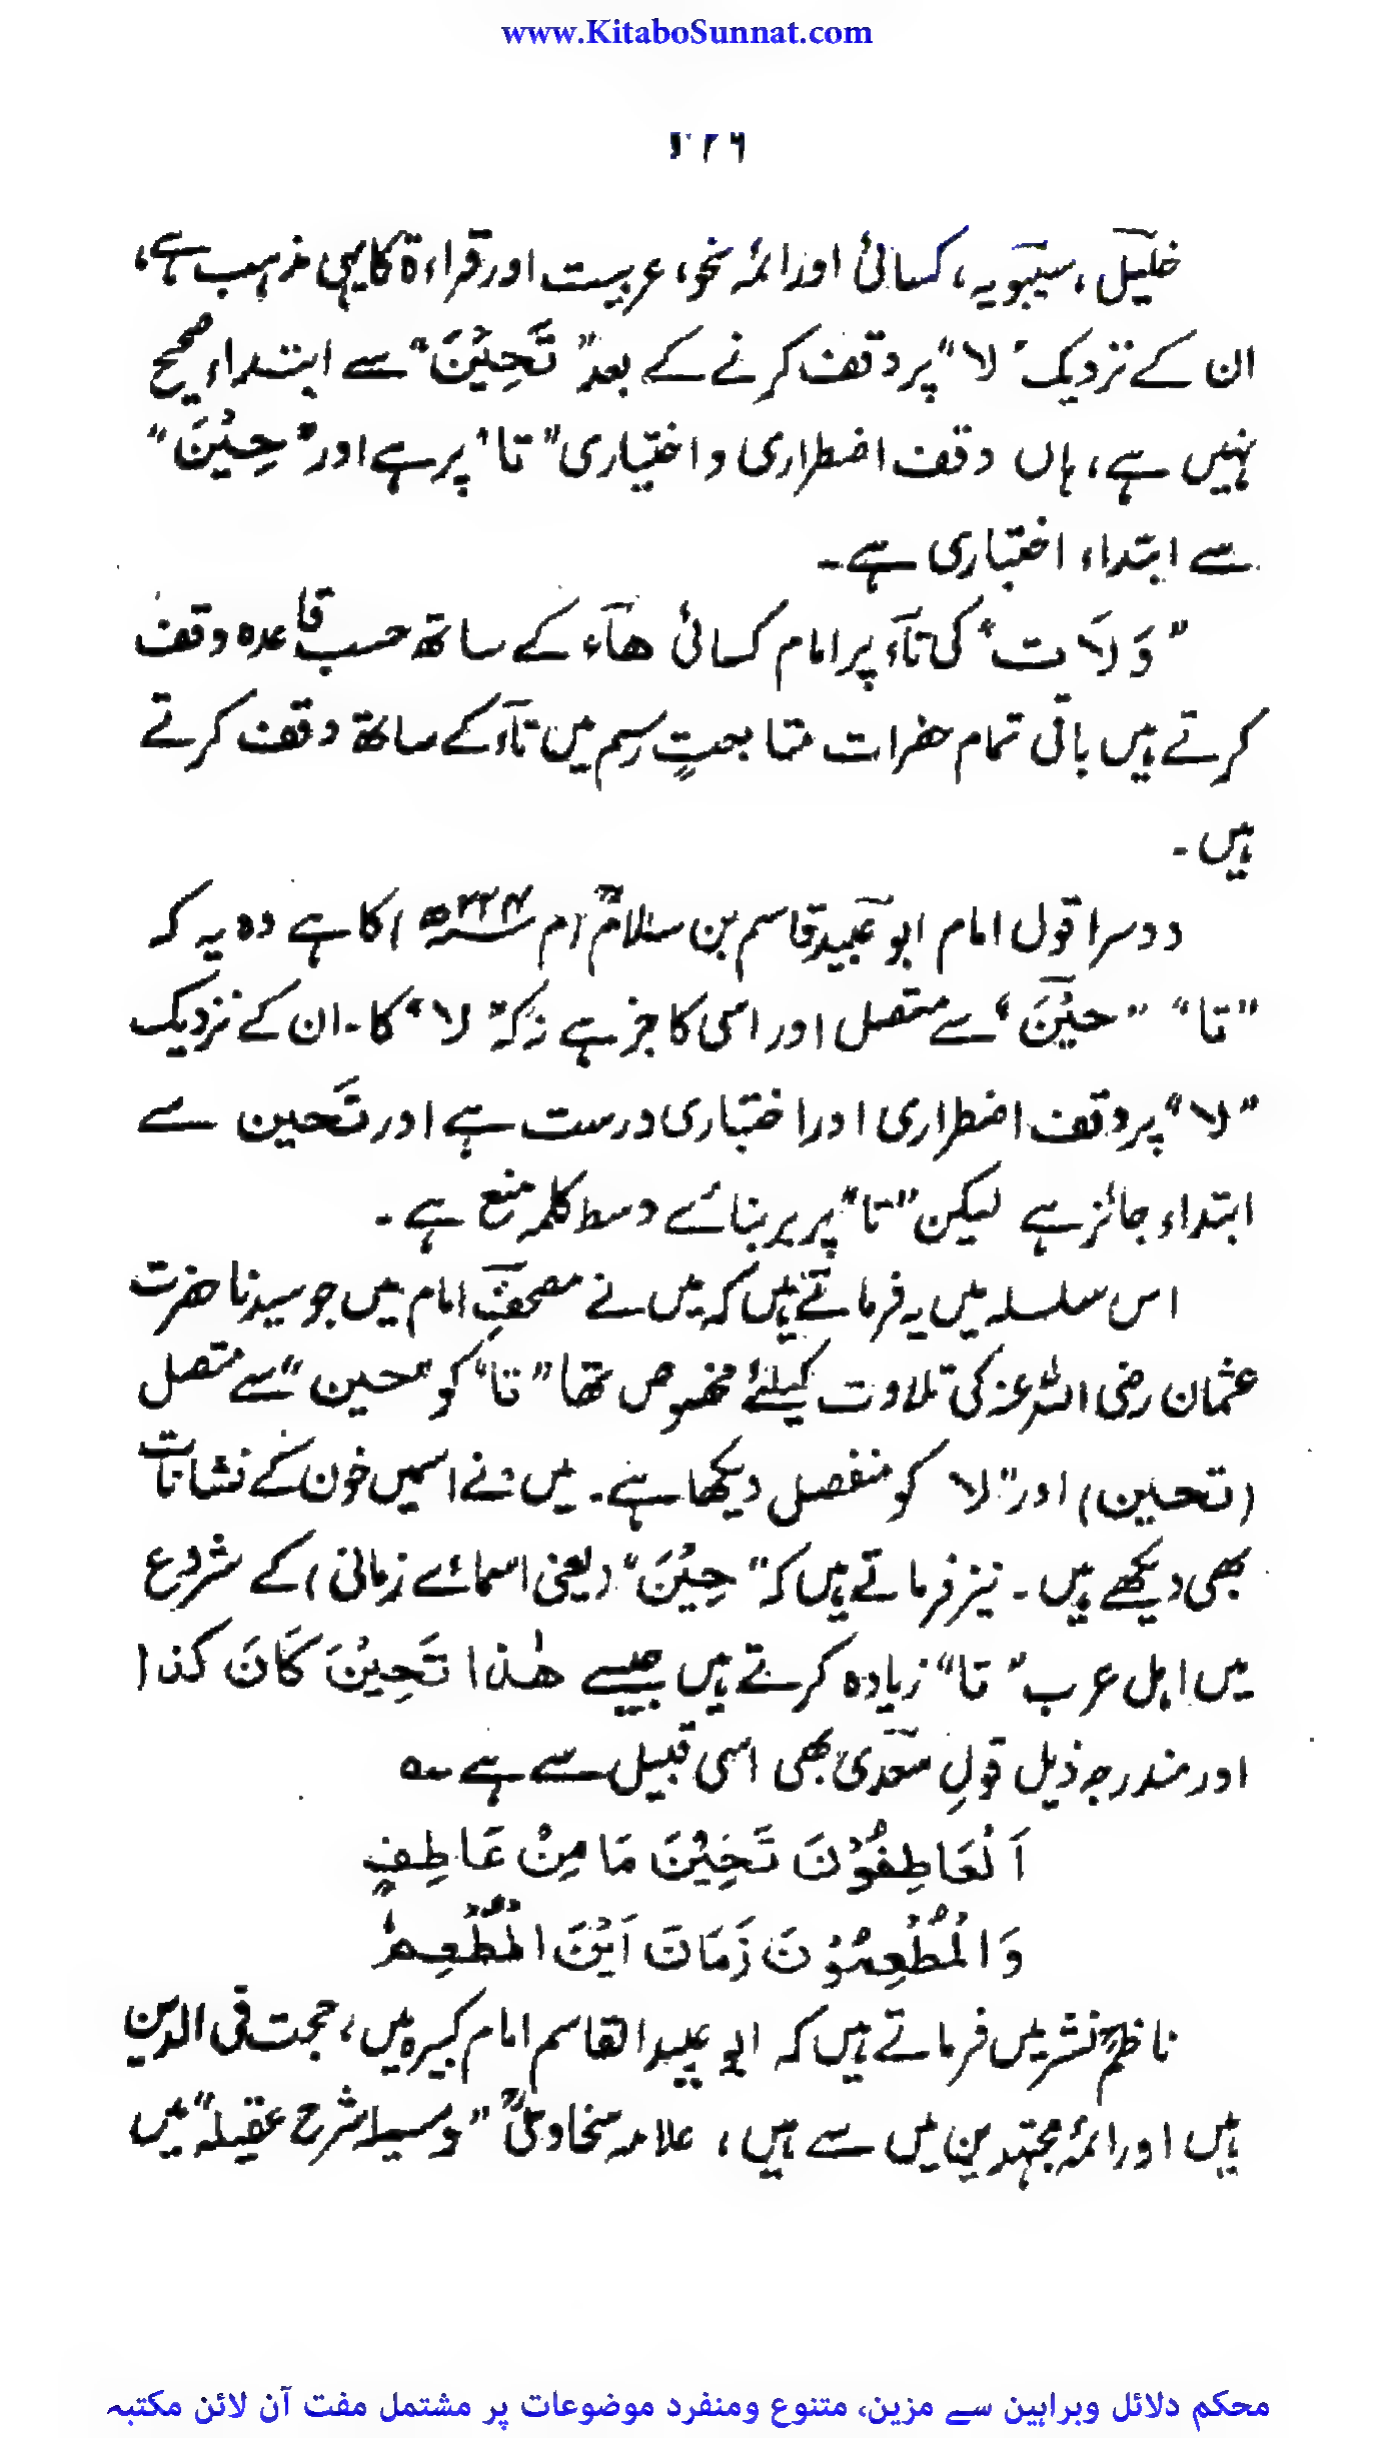 www.KitaboSunnat.com
۲۲۶
خلیل، سیبویہ، کسائی اور ائمہ نحو، عربیت اور قراءۃ کا یہی مذہب ہے،
ان کے نزدیک "لا" پر وقف کرنے کے بعد "تَحِیْنَ" سے ابتداء صحیح
نہیں ہے، ہاں وقف اضطراری و اختیاری "تا" پر ہے اور "حِیْنَ"
سے ابتداء اختباری ہے۔
"وَلَاتَ" کی تآء پر امام کسائی ھآء کے ساتھ حسب قاعدہ وقف
کرتے ہیں باقی تمام حضرات متابعتِ رسم میں تآء کے ساتھ وقف کرتے
ہیں۔
دوسرا قول امام ابو عبید قاسم بن سلامؒ (م ۲۲۴ھ) کا ہے وہ یہ کہ
"تا" "حِیْنَ" سے متصل اور اسی کا جز ہے نہ کہ "لا" کا۔ ان کے نزدیک
"لا" پر وقف اضطراری اور اختباری درست ہے اور تَحین سے
ابتداء جائز ہے لیکن "تا" پر بر بنائے وسط کلمہ منع ہے۔
اس سلسلہ میں یہ فرماتے ہیں کہ میں نے مصحفِ امام میں جو سیدنا حضرت
عثمان رضی اللہ عنہ کی تلاوت کیلئے مخصوص تھا "تا" کو "حین" سے متصل
(تحین) اور "لا کو منفصل دیکھا ہے۔ میں نے اسمیں خون کے نشانات
بھی دیکھے ہیں۔ نیز فرماتے ہیں کہ "حِیْنَ" (یعنی اسمائے زمانی) کے شروع
میں اہل عرب "تا" زیادہ کرتے ہیں جیسے ھٰذا تَحِیْنَ کَانَ کذا
اور مندرجہ ذیل قولِ سعدیؒ بھی اسی قبیل سے ہے ؎
اَلْعَاطِفُوْنَ تَحِیْنَ مَا مِنْ عَاطِفٍ
وَالْمُطْعِمُوْنَ زَمَانَ اَیْنَ الْمُطْعِمُ
ناظمؒ نشر میں فرماتے ہیں کہ ابو عبید القاسم امام کبیر ہیں، حجت فی الدین
ہیں اور ائمہ مجتہدین میں سے ہیں، علامہ سخاویؒ "وسیلہ شرح عقیلہ" میں
محکم دلائل وبراہین سے مزین، متنوع ومنفرد موضوعات پر مشتمل مفت آن لائن مکتبہ